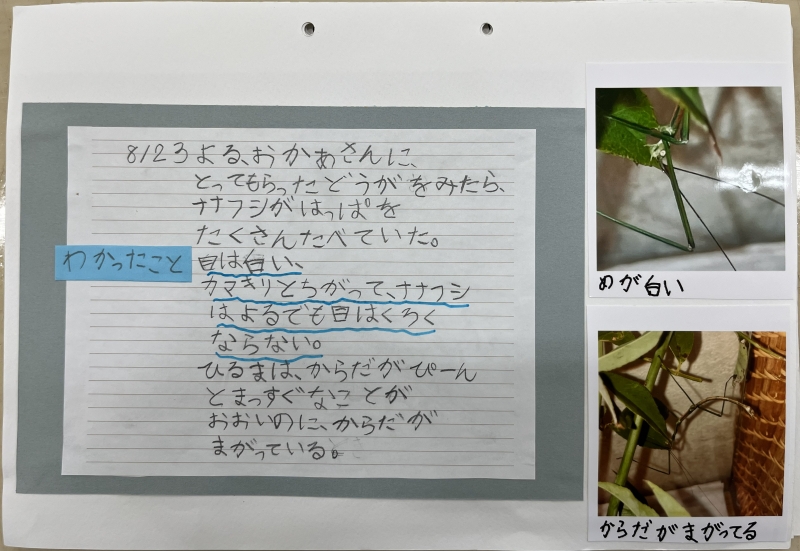 8/23よる、おかあさんに、
とってもらったどうがをみたら、
ナナフシがはっぱを
たくさんたべていた。
わかったこと
目は白い、
カマきりとちがって、ナナフシ
はよるでも目はくろく
ならない。
ひるまは、からだがぴーん
とまっすぐなことが
おおいのに、からだが
まがっている。
めが白い
からだがまがってる